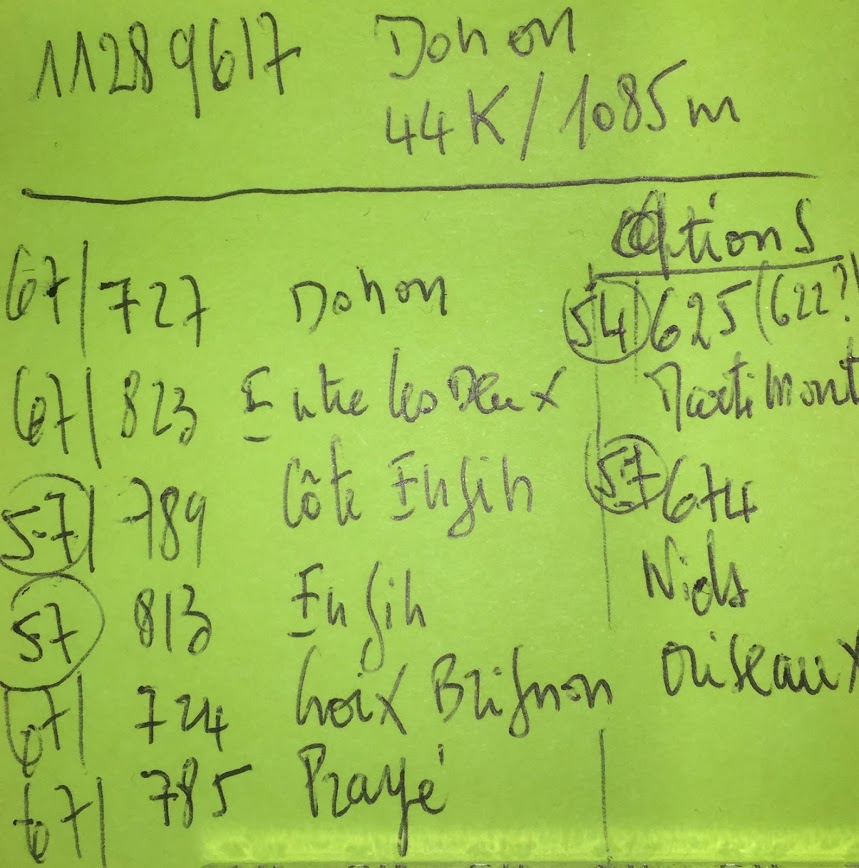 11289617 Donon
44K/1085m
67| 727 Donon
67| 823 Entre les Deux
57| 789 Côte Engin
57 813 Engin
67| 724 Croix Brignon
67| 785 Prayé
Options
54 625 (622?)
Martimont
57 674
Nids
Oiseaux